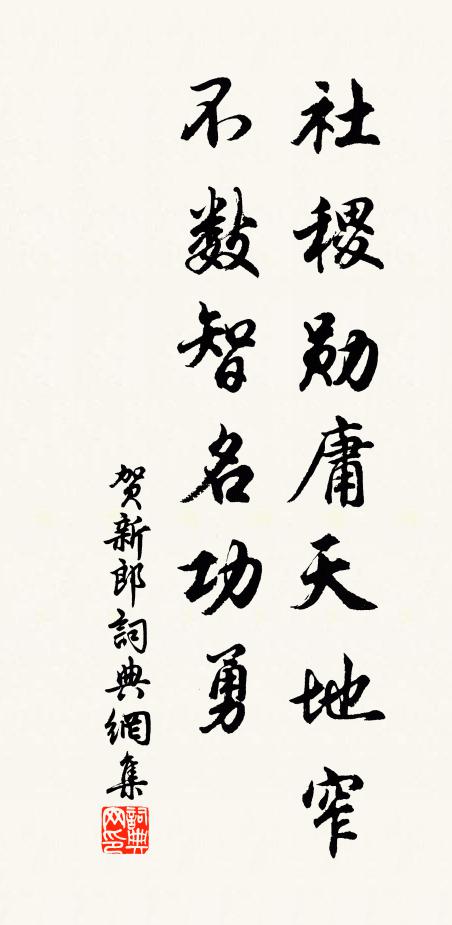 社稷勋庸天地窄
不数智名功勇
贺新郎詞典網集
詞典网印